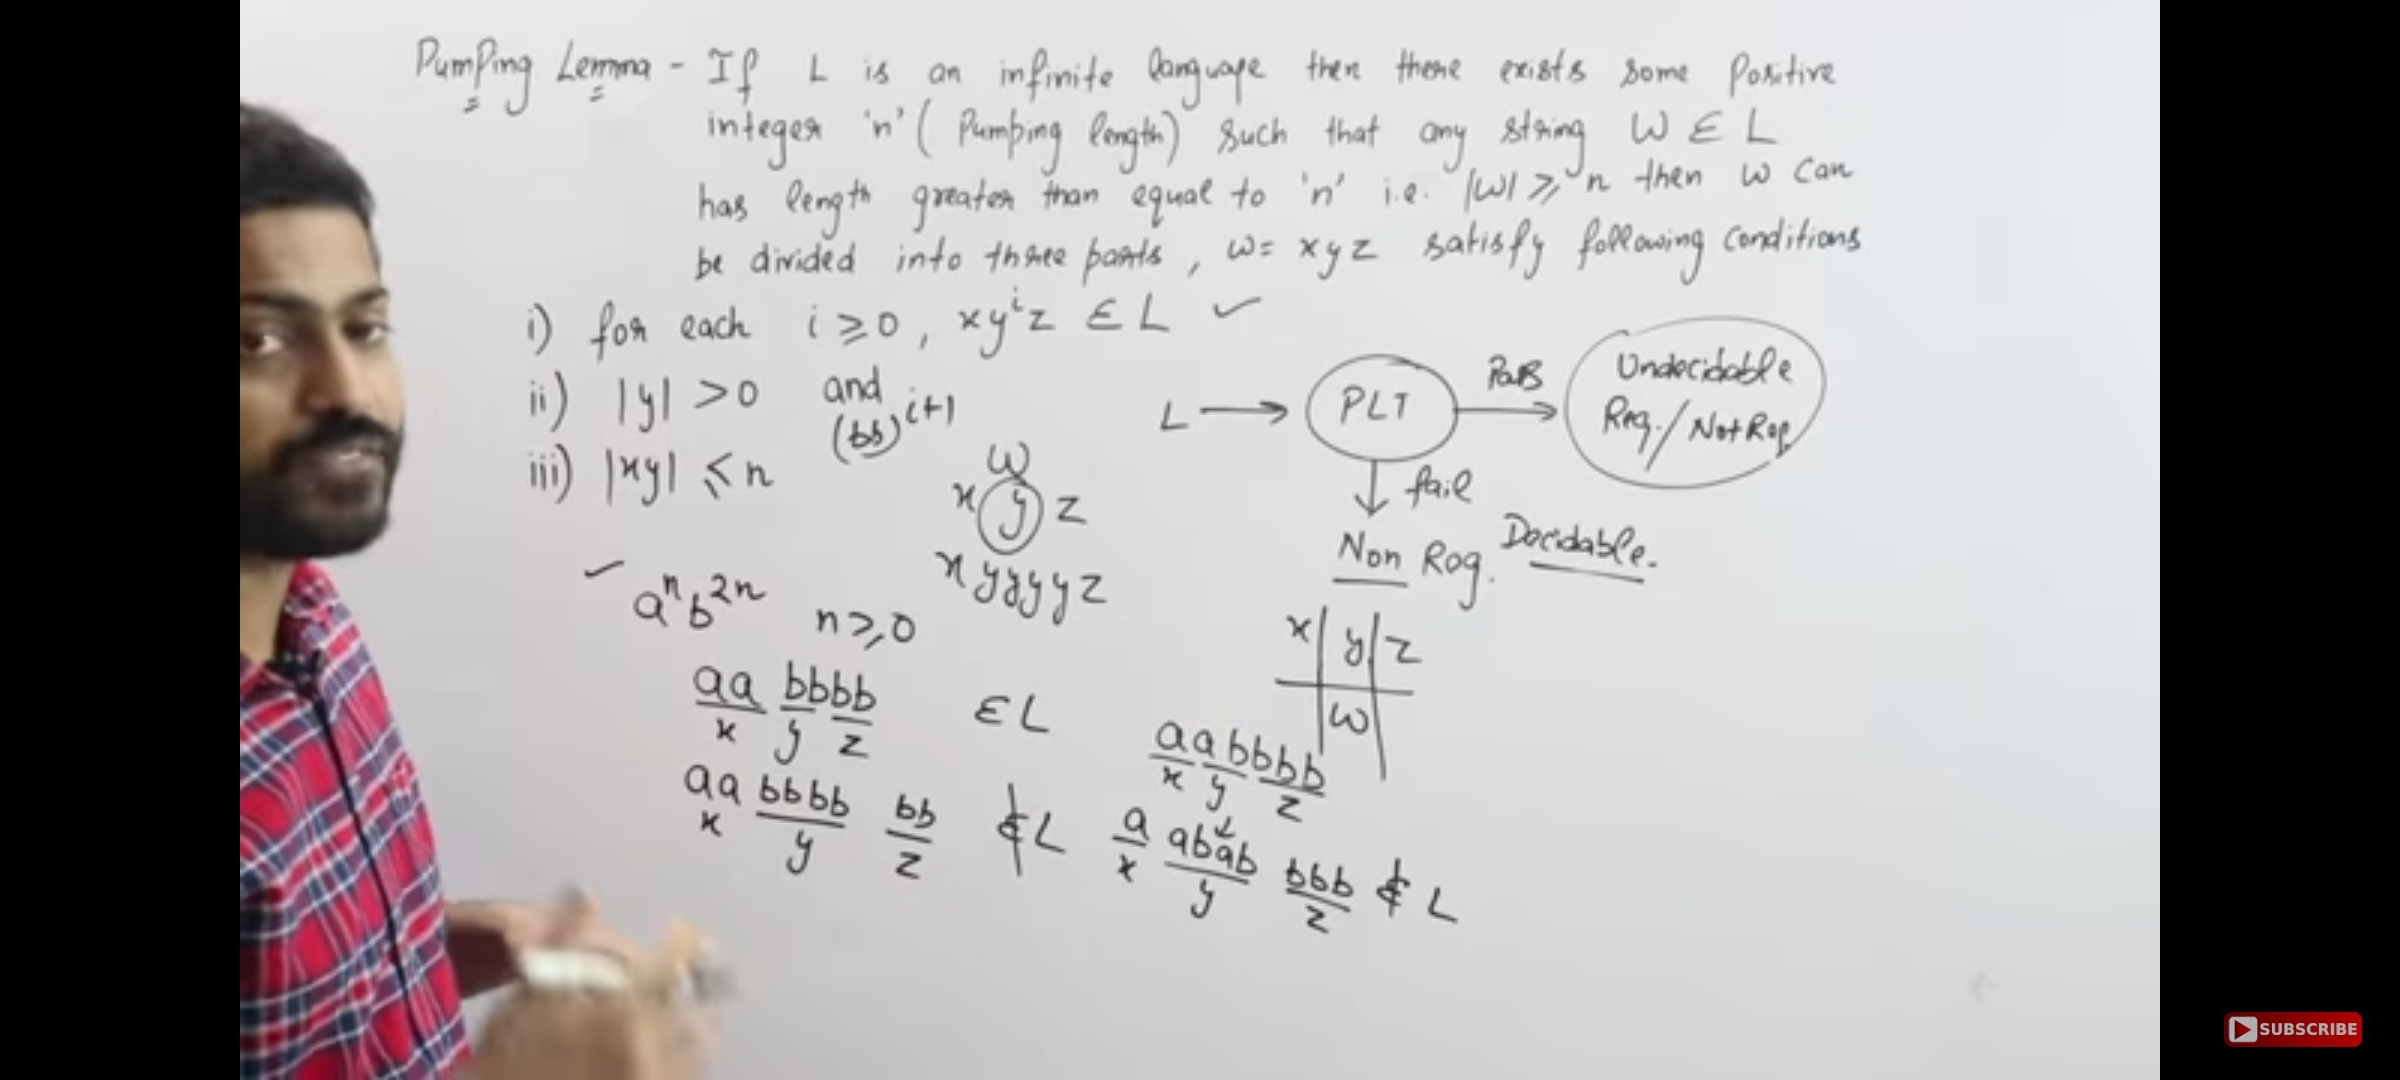 Pumping Lemma - If L is an infinite language then there exists some Positive
integer 'n' (Pumping length) such that any string W ∈ L
has length greater than equal to 'n' i.e. |W| ≥ n then W can
be divided into three parts, w= xyz satisfy following conditions
i) for each i ≥ 0, xyⁱz ∈ L ✓
ii) |y| > 0 and
(bb)ⁱ⁺¹
iii) |xy| ≤ n
L → PLT
Pass
Undecidable
Reg./Not Reg
fail
Non Reg. Decidable.
W
x y z
x yyyy z
✓ aⁿb²ⁿ n ≥, 0
aa bbbb ∈ L
x y z
aa bbbb bb ∉ L
x y z
x | y | z
W
aabbbb
x y z
a abab bbb ∉ L
x y z
SUBSCRIBE